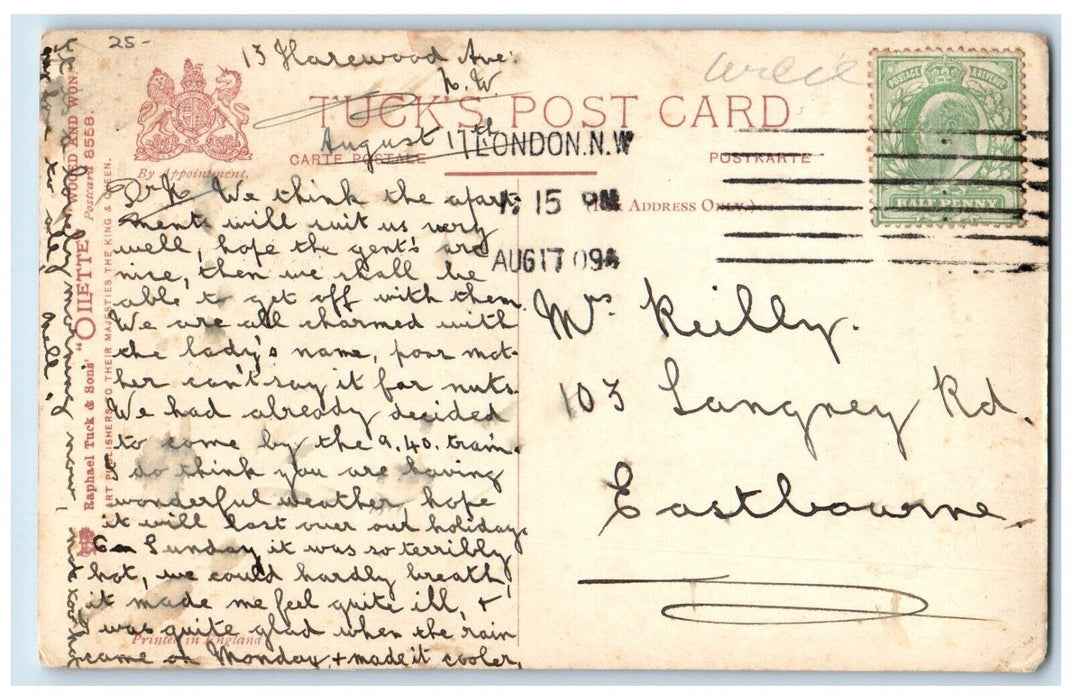 25-
13 Harewood Ave.
N.W
TUCK'S POST CARD
August 17th
CARTE POSTALE
POSTKARTE
LONDON.N.W
1. 15 PM
AUG 17 09
(For Address Only.)
By Appointment.
POSTAGE REVENUE
HALF PENNY
We think the apart-
ment will suit us very
well, hope the gent's are
nice, then we shall be
able to get off with them.
We are all charmed with
the lady's name, poor mot-
her can't say it for nuts.
We had already decided
to come by the 9.40. train.
I do think you are having
wonderful weather hope
it will last over our holidays.
On Sunday it was so terribly
hot, we could hardly breath
it made me feel quite ill, +
I was quite glad when the rain
came on Monday, + made it cooler,
Mrs Keilly.
103 Langney Rd.
Eastbourne.
Printed in England
Raphael Tuck & Sons' "OILETTE" "WOOED AND WON."
Postcard 8558.
ART PUBLISHERS TO THEIR MAJESTIES THE KING & QUEEN.